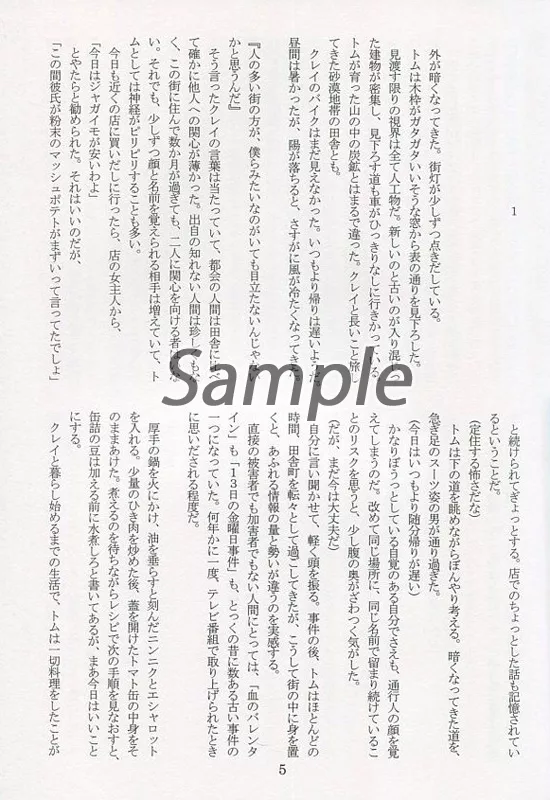 1
外が暗くなってきた。街灯が少しずつ点きだしている。
トムは木枠がガタガタいいそうな窓から表の通りを見下ろした。
見渡す限りの視界は全て人工物だ。新しいのと古いのが入り混じっ
た建物が密集し、見下ろす道も車がひっきりなしに行きかっている。
トムが育った山の中の炭鉱とはまるで違った。クレイと長いこと旅し
てきた砂漠地帯の田舎とも。
クレイのバイクはまだ見えなかった。いつもより帰りは遅いようだ。
昼間は暑かったが、陽が落ちると、さすがに風が冷たくなってきた。
『人の多い街の方が、僕らみたいなのがいても目立たないんじゃない
かと思うんだ』
そう言ったクレイの言葉は当たっていて、都会の人間は田舎に
て確かに他人への関心が薄かった。出自の知れない人間は珍し
く、この街に住んで数か月が過ぎても、二人に関心を向ける者は
い。それでも、少しずつ顔と名前を覚えられる相手は増えていて、ト
ムとしては神経がピリピリすることも多い。
今日も近くの店に買いだしに行ったら、店の女主人から、
「今日はジャガイモが安いわよ」
とやたらと勧められた。それはいいのだが、
「この間彼氏が粉末のマッシュポテトがまずいって言ってたでしょ」
と続けられてぎょっとする。店でのちょっとした話も記憶されてい
るということだ。
(定住する怖さだな)
トムは下の道を眺めながらぼんやり考える。暗くなってきた道を、
急ぎ足のスーツ姿の男が通り過ぎた。
(今日はいつもより随分帰りが遅い)
かなりぼうっとしている自覚のある自分でさえも、通行人の顔を覚
えてしまうのだ。改めて同じ場所に、同じ名前で留まり続けているこ
とのリスクを思うと、少し腹の奥がざわつく気がした。
(だが、まだ今は大丈夫だ)
自分に言い聞かせて、軽く頭を振る。事件の後、トムはほとんどの
時間、田舎町を転々として過ごしてきたが、こうして街の中に身を置
くと、あふれる情報の量と勢いが違うのを実感する。
直接の被害者でも加害者でもない人間にとっては、「血のバレンタ
イン」も「13日の金曜日事件」も、とっくの昔に数ある古い事件の
一つになっていた。何年かに一度、テレビ番組で取り上げられたとき
に思いだされる程度だ。
厚手の鍋を火にかけ、油を垂らすと刻んだニンニクとエシャロット
を入れる。少量のひき肉を炒めた後、蓋を開けたトマト缶の中身をそ
のままあけた。煮えるのを待ちながらレシピで次の手順を見なおすと、
缶詰の豆は加える前に水煮しろと書いてあるが、まあ今日はいいこと
にする。
クレイと暮らし始めるまでの生活で、トムは一切料理をしたことが
5
Sample